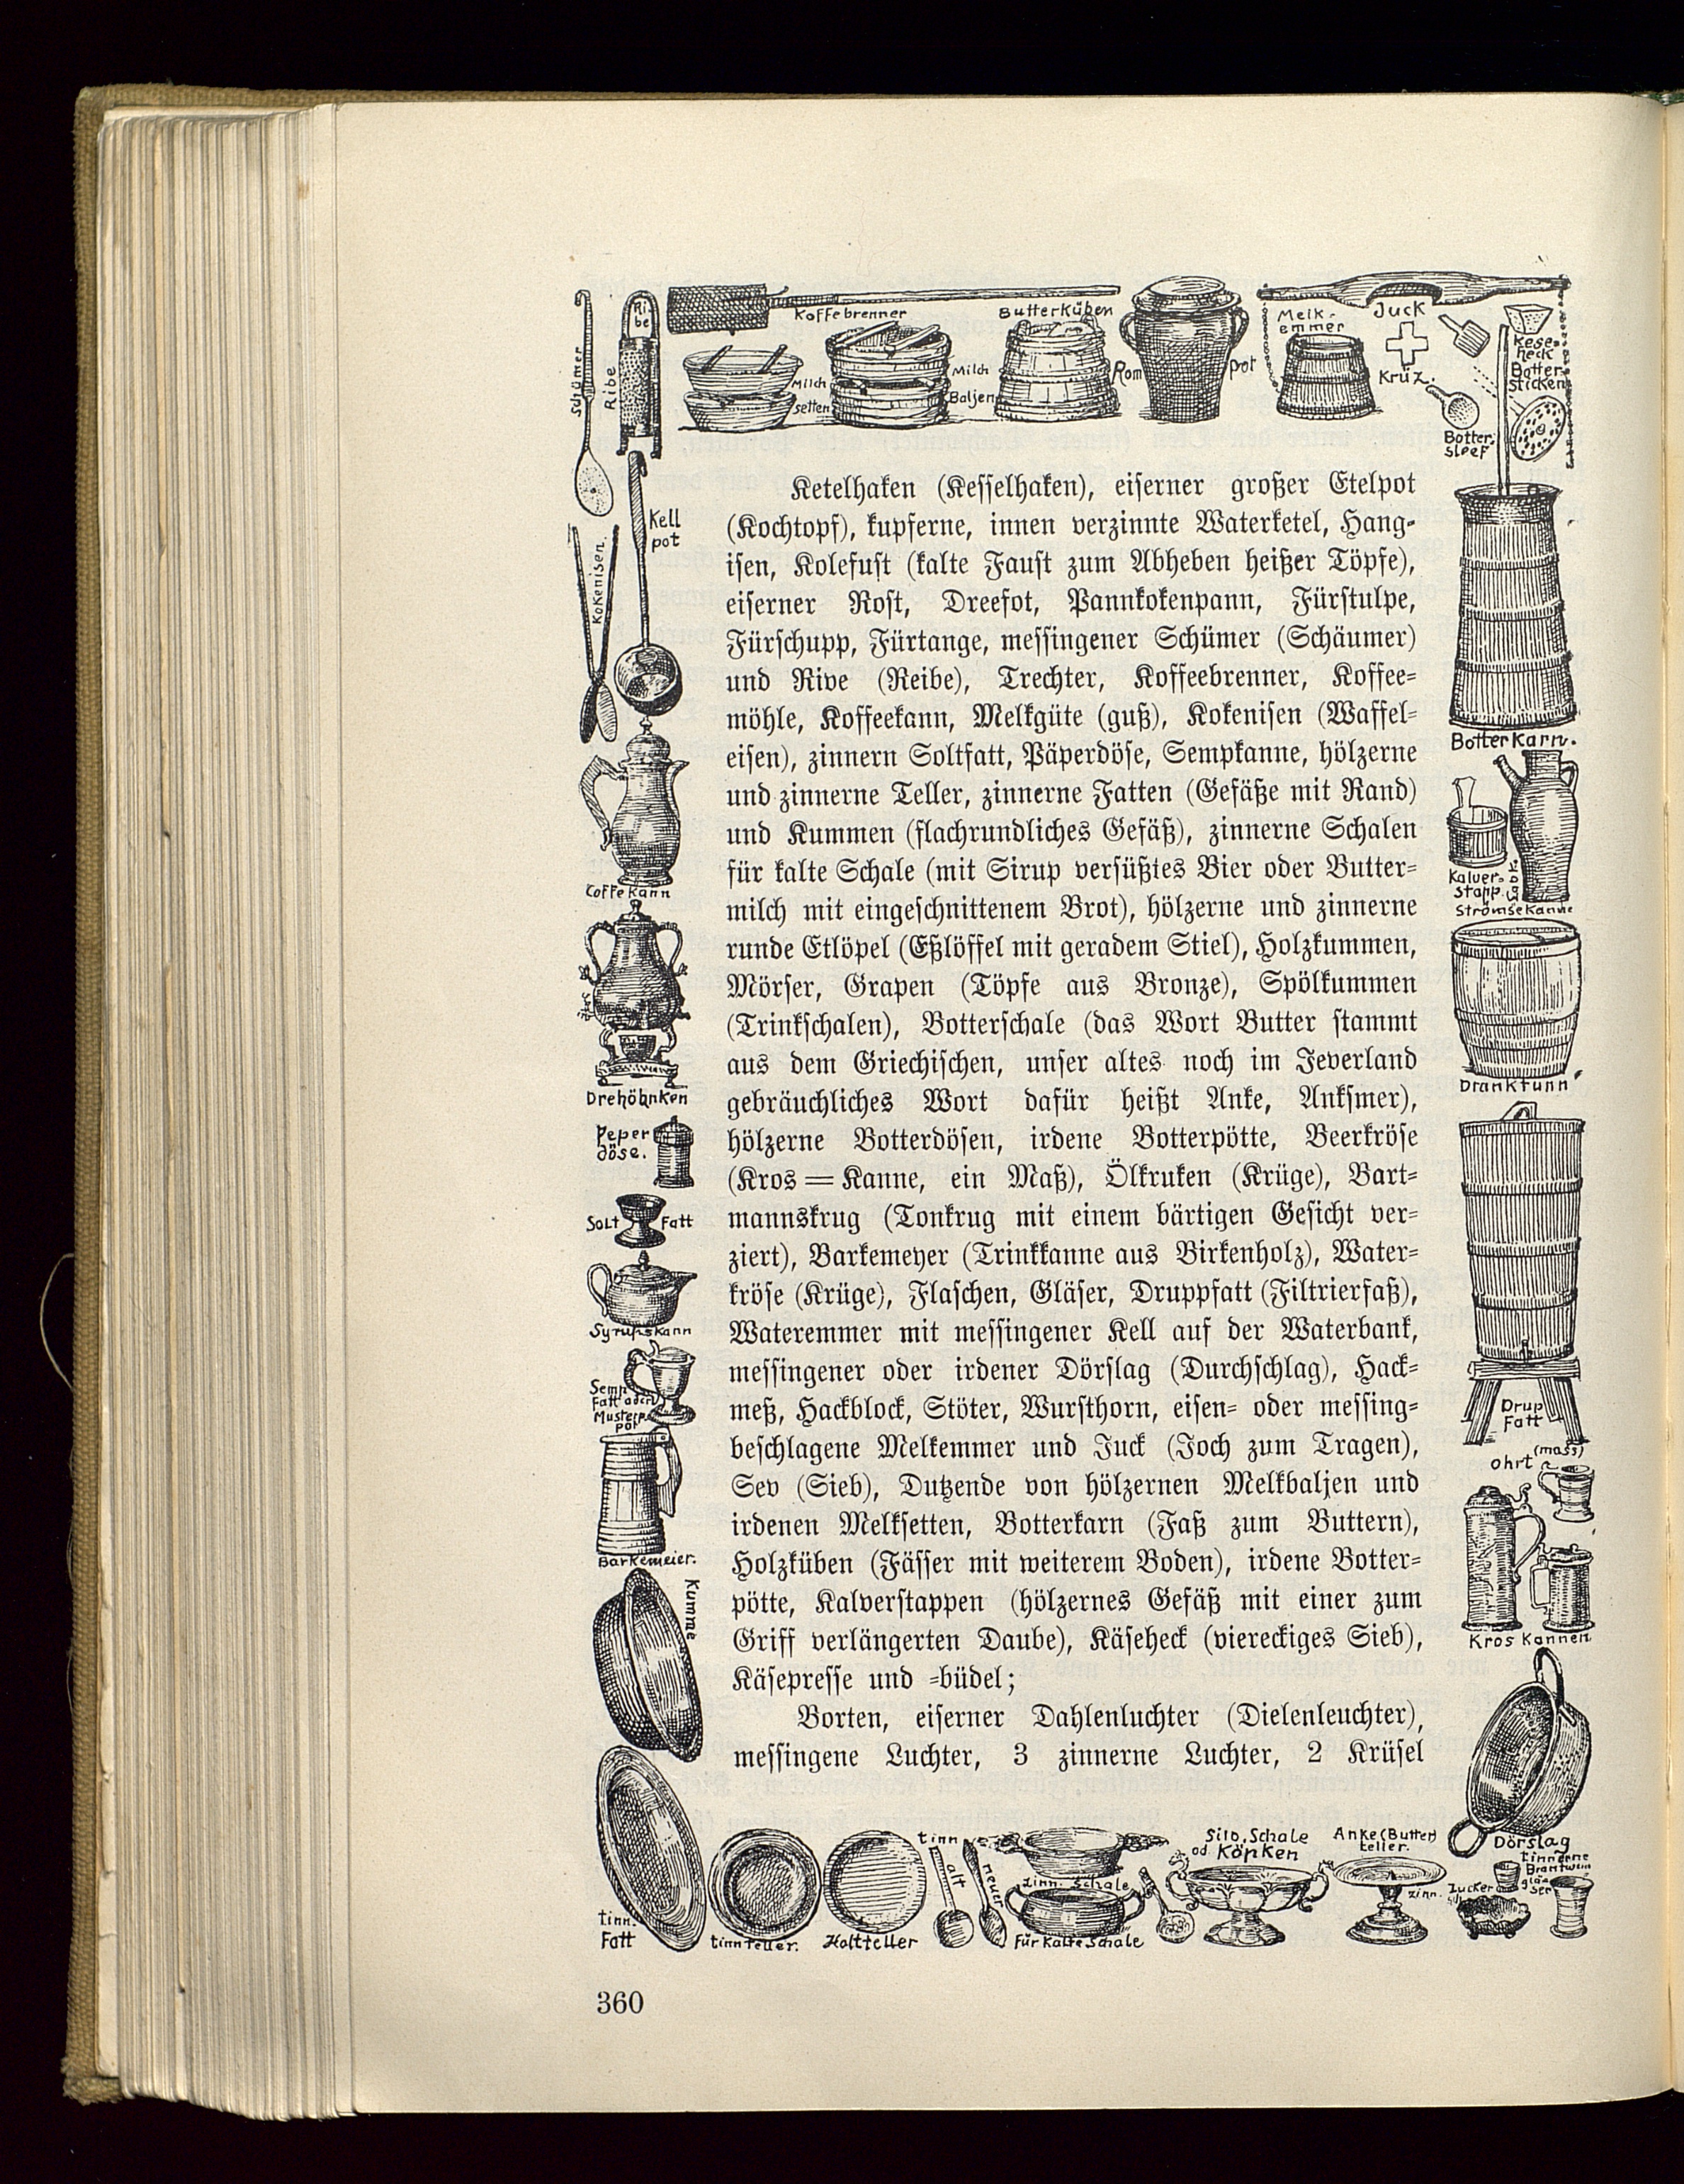 Schümer
Ri-
be
Ribe
Koffebrenner
Milch
setten
Milch
Baljen
Butterküben
Rom
pot
Melk-
emmer
Juck
Krüz.
Kese-
heck
Botter
sticken
Botter-
sleef
Kell
pot
Kokenisen.
Ketelhaken (Kesselhaken), eiserner großer Etelpot
(Kochtopf), kupferne, innen verzinnte Waterketel, Hang-
isen, Kolefust (kalte Faust zum Abheben heißer Töpfe),
eiserner Rost, Dreefot, Pannkokenpann, Fürstulpe,
Fürschupp, Fürtange, messingener Schümer (Schäumer)
und Rive (Reibe), Trechter, Koffeebrenner, Koffee-
möhle, Koffeekann, Melkgüte (guß), Kokenisen (Waffel-
eisen), zinnern Soltfatt, Päperdöse, Sempkanne, hölzerne
und zinnerne Teller, zinnerne Fatten (Gefäße mit Rand)
und Kummen (flachrundliches Gefäß), zinnerne Schalen
für kalte Schale (mit Sirup versüßtes Bier oder Butter-
milch mit eingeschnittenem Brot), hölzerne und zinnerne
runde Etlöpel (Eßlöffel mit geradem Stiel), Holzkummen,
Mörser, Grapen (Töpfe aus Bronze), Spölkummen
(Trinkschalen), Botterschale (das Wort Butter stammt
aus dem Griechischen, unser altes noch im Jeverland
gebräuchliches Wort dafür heißt Anke, Anksmer),
hölzerne Botterdösen, irdene Botterpötte, Beerkröse
(Kros = Kanne, ein Maß), Ölkruken (Krüge), Bart-
mannskrug (Tonkrug mit einem bärtigen Gesicht ver-
ziert), Barkemeyer (Trinkkanne aus Birkenholz), Water-
kröse (Krüge), Flaschen, Gläser, Druppfatt (Filtrierfaß),
Wateremmer mit messingener Kell auf der Waterbank,
messingener oder irdener Dörslag (Durchschlag), Hack-
meß, Hackblock, Stöter, Wursthorn, eisen- oder messing-
beschlagene Melkemmer und Juck (Joch zum Tragen),
Sev (Sieb), Dutzende von hölzernen Melkbaljen und
irdenen Melksetten, Botterkarn (Faß zum Buttern),
Holzküben (Fässer mit weiterem Boden), irdene Botter-
pötte, Kalverstappen (hölzernes Gefäß mit einer zum
Griff verlängerten Daube), Käseheck (viereckiges Sieb),
Käsepresse und -büdel;
Borten, eiserner Dahlenluchter (Dielenleuchter),
messingene Luchter, 3 zinnerne Luchter, 2 Krüsel
Koffekann
Drehöhnken
Peper
döse.
Solt Fatt
Syrupskann
Semp
Fatt oder
Musterp
pot
Barkemeier.
Kumme
Botterkarn.
Kalver-
stapp.
Strömsekanne
Dranktunn
Drup
Fatt
(mass)
ohrt
Kros Kannen
Dörslag
tinn.
Fatt
tinnteller.
Holtteller
tinn
alt
neuer
zinn. Schale
Für Kalte Schale
Silb. Schale
od. Köpken
Anke (Butter)
teller.
zinn.
Zucker
tinnerne
Brantwin
glä-
ser
360